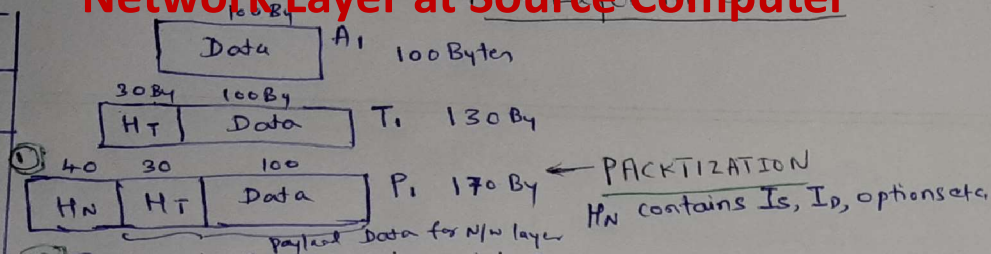 Network Layer at Source Computer
100 By
Data A1 100 Bytes
30 By 100 By
HT Data T1 130 By
① 40 30 100
HN HT Data P1 170 By ← PACKTIZATION
HN contains IS, ID, options etc.
payload Data for N/W layer